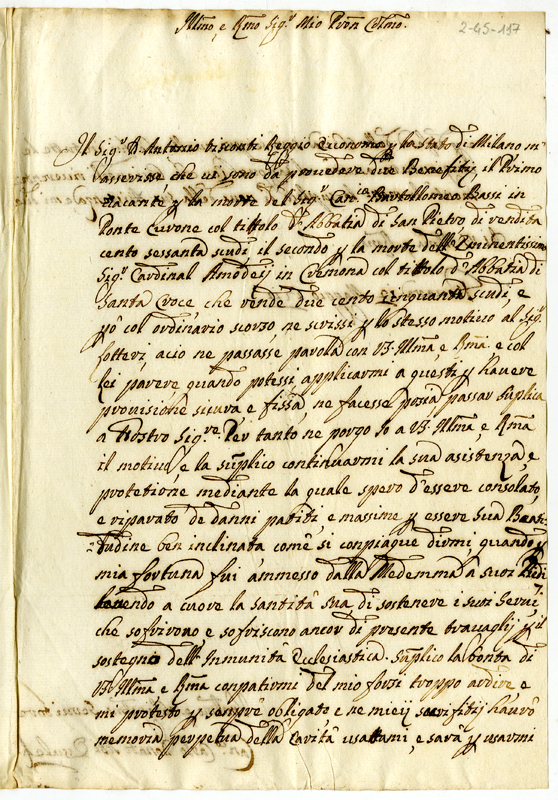 Illmo, e Rmo Sigr Mio Pron Colmo
2-45-117
Il Sigr D Antonio Visconti Reggio Economo p lo Stato di Milano m'
asserisse che vi sono da provedere due Benefitij, il Primo
vacante p la morte del Sigr Canco Bartollomeo Bassi in
Ponte Curone col tittolo d'Abbatia di San Pietro di rendita
cento sessanta scudi il secondo p la morte dell'Eminentissimo
Sigr Cardinal Amodeij in Cremona col tittolo d'Abbatia di
Santa Croce che rende due cento cinquanta scudi, e
col ordinario scorso ne scrissi p lo stesso motivo al Sigr
sotteri, acio ne passasse parolla con VS Illma, e Rma e col
lei parere quando potessi applicarmi a questi p havere
provisione sicura e fissa, ne facesse possia passar suplica
a Nostro Sigre. Per tanto ne porgo Io a VS Illma, e Rma
il motivo, e la suplico continuarmi la sua asistenza, e
protetione mediante la quale spero d'essere consolato,
e riparato de danni patiti e massime p essere Sua Beati:
tudine ben inclinata come si conpiaque dirmi, quando p
mia fortuna fui ammesso dalla Medemma a suoi Piedi
havendo a cuore la santità sua di sostenere i suoi Servi,
che sofrirono, e sofriscono ancor di presente travaglij p il
sostegno dell'Inmunità Eclesiastica. Suplico la bontà di
VS Illma e Rma conpatirmi del mio forsi troppo ardire e
mi protesto p sempre obligato e ne mieij sacrifitij haurò
memoria perpetua della Carità usattami, e sarà p usarmi